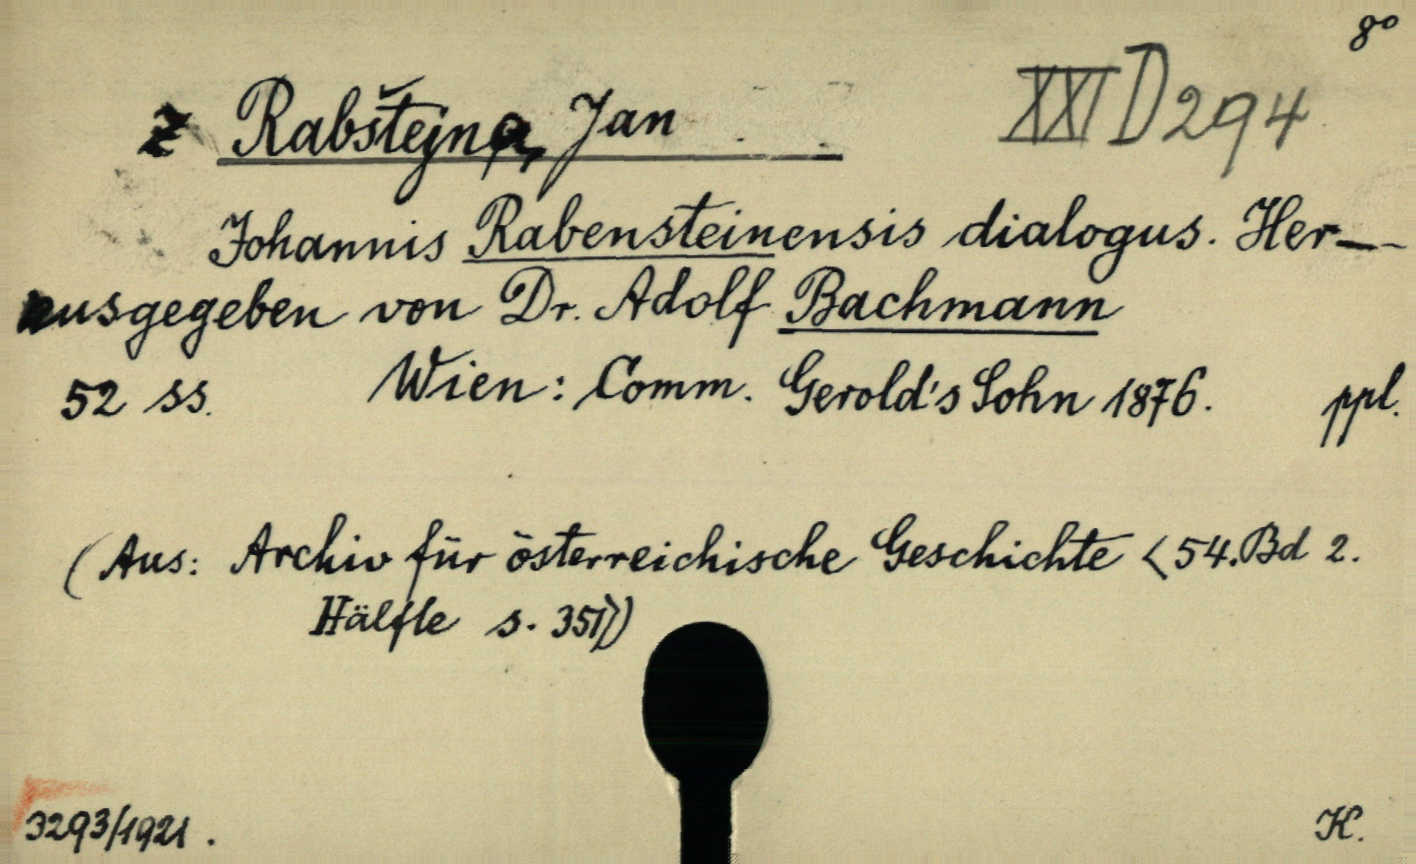 8°
z Rabštejna, Jan XXI D 294
Johannis Rabensteinensis dialogus. Her-
ausgegeben von Dr. Adolf Bachmann
52 ss. Wien: Comm. Gerold's Sohn 1876. ppl.
(Aus: Archiv für österreichische Geschichte <54. Bd 2.
Hälfte s. 351>)
3293/1921. K.